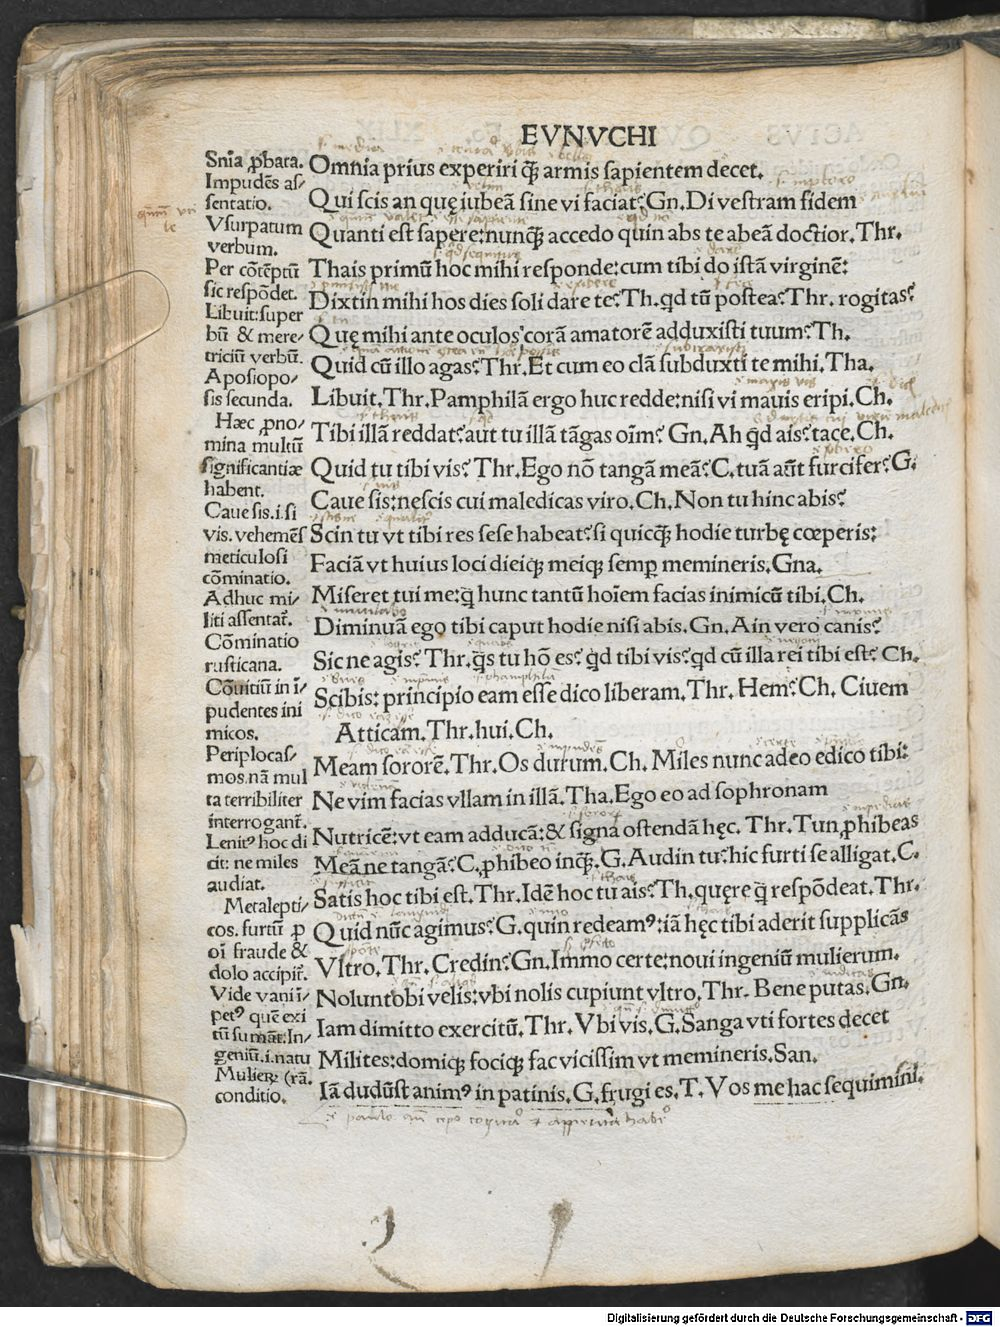 EVNVCHI
Snīa ꝓbata.
Impudēs as/
sentatio.
Vsurpatum
verbum.
Per cōtēptū
sic respōdet.
Libuit:super
bū & mere-
triciū verbū.
Aposiopo/
sis secunda.
Hæc ꝓno/
mina multū
significantiæ
habent.
Caue sis.i.si
vis. vehemēs
meticulosi
cōminatio.
Adhuc mi/
liti assentat̄.
Cōminatio
rusticana.
Cōuitiū in ī-
pudentes ini
micos.
Periplocas/
mos.nā mul
ta terribiliter
interrogant̄.
Lenitꝰ hoc di
cit: ne miles
audiat.
Metalepti/
cos. furtū p̱
oī fraude &
dolo accipit̄.
Vide vani ī-
petꝰ quē exi
tū sumāt: In/
geniū.i.natu
Mulieꝝ (rā.
conditio.
Omnia prius experiri q̄ꝫ armis sapientem decet.
Qui scis an quę iubeā sine vi faciat? Gn. Di vestram fidem
Quanti est sapere: nunq̄ꝫ accedo quin abs te abeā doctior. Thr.
Thais primū hoc mihi responde: cum tibi do istā virginē:
Dixtin mihi hos dies soli dare te? Th. qd tū postea? Thr. rogitas?
Quę mihi ante oculos corā amatorē adduxisti tuum? Th.
Quid cū illo agas? Thr. Et cum eo clā subduxti te mihi. Tha.
Libuit. Thr. Pamphilā ergo huc redde: nisi vi mauis eripi. Ch.
Tibi illā reddat? aut tu illā tāgas oīm? Gn. Ah qd ais? tace. Ch.
Quid tu tibi vis? Thr. Ego nō tangā meā? C. tuā aūt furcifer? G.
Caue sis: nescis cui maledicas viro. Ch. Non tu hinc abis?
Scin tu vt tibi res sese habeat? si quicq̄ꝫ hodie turbę cœperis:
Faciā vt huius loci dieiqꝫ meiqꝫ semp̱ memineris. Gna.
Miseret tui me: q̄ hunc tantū hoīem facias inimicū tibi. Ch.
Diminuā ego tibi caput hodie nisi abis. Gn. Ain vero canis?
Sic ne agis? Thr. q̄s tu hō es? qd tibi vis? qd cū illa rei tibi est? Ch.
Scibis: principio eam esse dico liberam. Thr. Hem? Ch. Ciuem
Atticam. Thr. hui. Ch.
Meam sororē. Thr. Os durum. Ch. Miles nunc adeo edico tibi:
Ne vim facias vllam in illā. Tha. Ego eo ad sophronam
Nutricē: vt eam adducā: & signa ostendā hęc. Thr. Tun ꝓhibeas
Meā ne tangā? C. ꝓhibeo inq̄ꝫ. G. Audin tu? hic furti se alligat. C.
Satis hoc tibi est. Thr. Idē hoc tu ais? Th. quęre q̄ respōdeat. Thr.
Quid nūc agimus? G. quin redeamꝰ: iā hęc tibi aderit supplicās
Vltro. Thr. Credin? Gn. Immo certe: noui ingeniū mulierum.
Nolunt obi velis: vbi nolis cupiunt vltro. Thr. Bene putas. Gn.
Iam dimitto exercitū. Thr. Vbi vis. G. Sanga vti fortes decet
Milites: domiqꝫ fociqꝫ fac vicissim vt memineris. San.
Iā dudūst animꝰ in patinis. G. frugi es. T. Vos me hac sequimini.
Digitalisierung gefördert durch die Deutsche Forschungsgemeinschaft - DFG